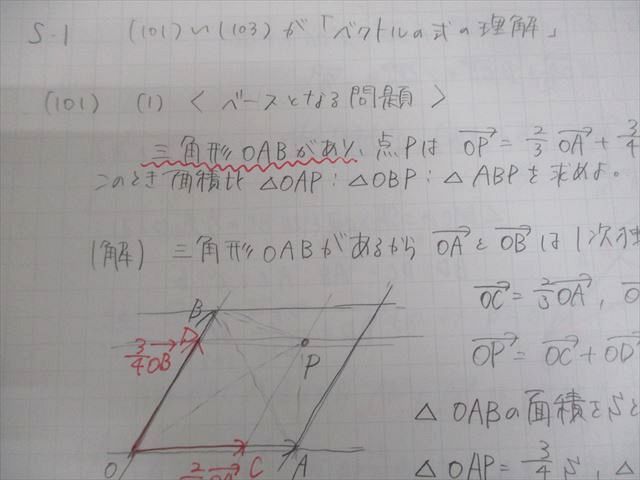 S.1 (101)い(103)が「ベクトルの式の理解」
(101) (1) < ベースとなる問題 >
三角形OABがあり、点Pは OP→ = 2/3 OA→ + 3/4
このとき面積比 △OAP : △OBP : △ABPを求めよ。
(解) 三角形OABがあるから OA→ と OB→ は1次独
OC→ = 2/3 OA→,
OP→ = OC→ + OD→
△OABの面積をSと
△OAP = 3/4 S, △
B
D
3/4 OB→
P
O
C
A
2/3 OA→